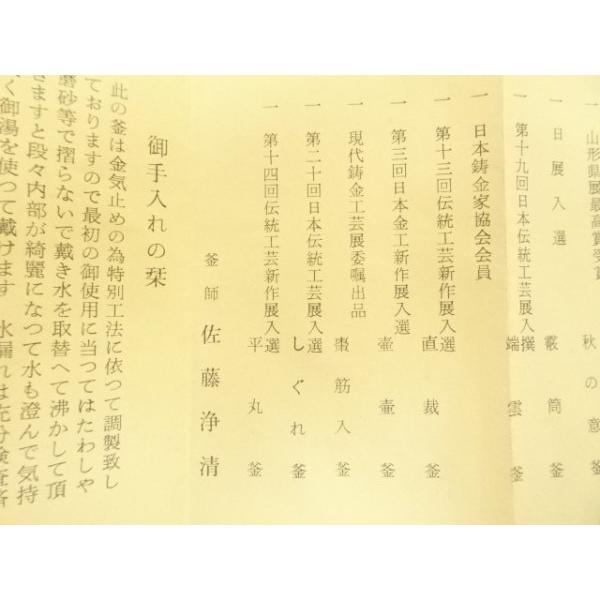 一 山形県展最高賞受賞 秋の意釜
一 日展入選 霰筒釜
一 第十九回日本伝統工芸展入選 端雲釜
一 日本鋳金家協会会員
一 第十三回伝統工芸新作展入選 直裁釜
一 第三回日本金工新作展入選 壷釜
一 現代鋳金工芸展委嘱出品 棗筋入釜
一 第二十回日本伝統工芸展入選 しぐれ釜
一 第十四回伝統工芸新作展入選 平丸釜
釜師 佐藤浄清
御手入れの栞
此の釜は金気止めの為特別工法に依つて調製致し
ておりますので最初の御使用に当つてはたわしや
磨砂等で摺らないで戴き水を取替へて沸かして頂
きますと段々内部が綺麗になつて水も澄んで気持
く御湯を使つて戴けます 水漏れは充分検査済